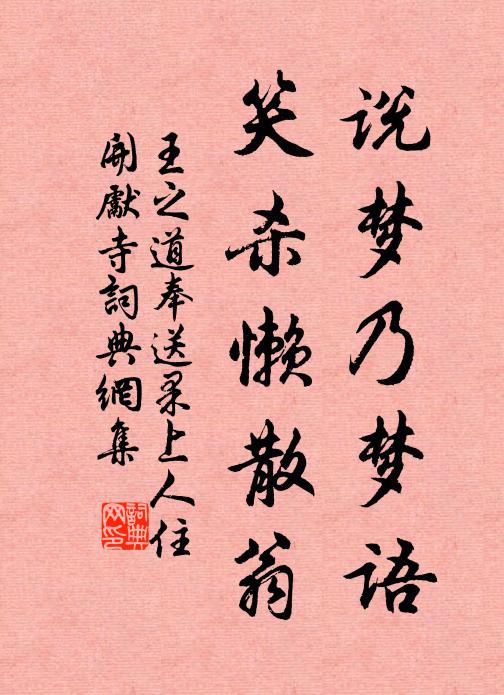 说梦乃梦语
笑杀懒散翁
王之道奉送果上人住
开献寺詞典網集
詞典网印